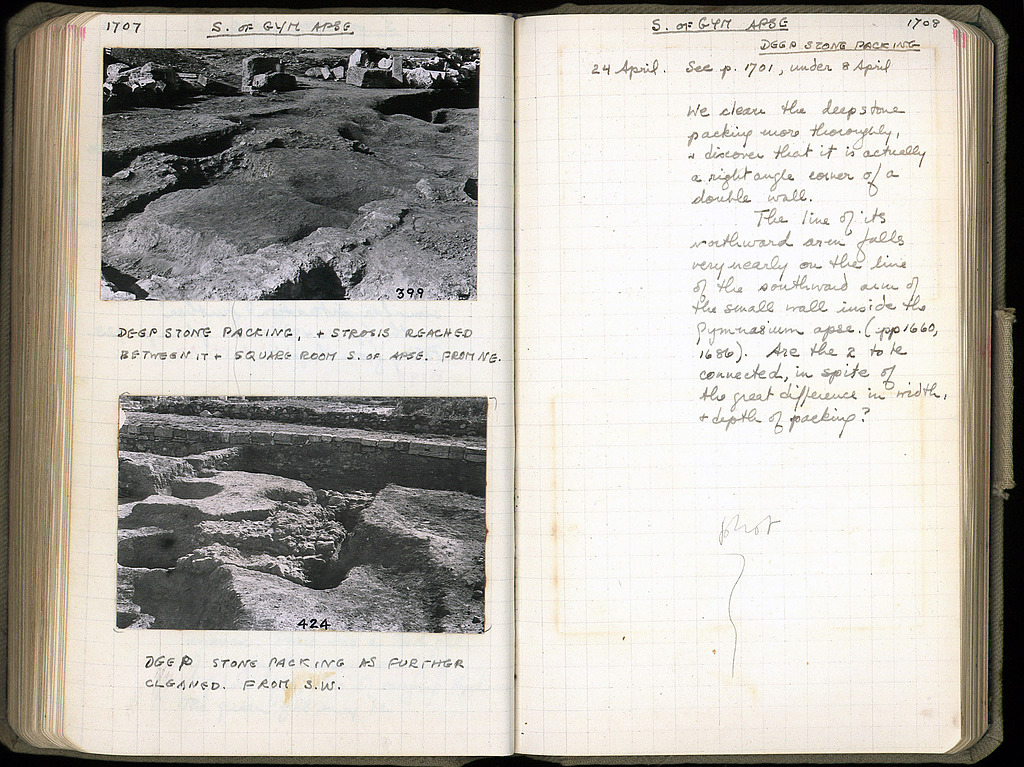 1707
S. OF GYM APSE
399
DEEP STONE PACKING, + STROSIS REACHED
BETWEEN IT + SQUARE ROOM S. OF APSE. FROM NE.
424
DEEP STONE PACKING AS FURTHER
CLEANED. FROM S.W.
S. OF GYM APSE
1708
DEEP STONE PACKING
24 April. See p. 1701, under 8 April
We clean the deep stone
packing more thoroughly,
+ discover that it is actually
a right angle corner of a
double wall.
The line of its
northward arm falls
very nearly on the line
of the southward arm of
the small wall inside the
Gymnasium apse. (pp 1660,
1686). Are the 2 to be
connected, in spite of
the great difference in width,
+ depth of packing?